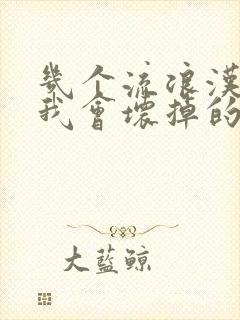 幾个流浪漢
我會壞掉的
大藍鯨